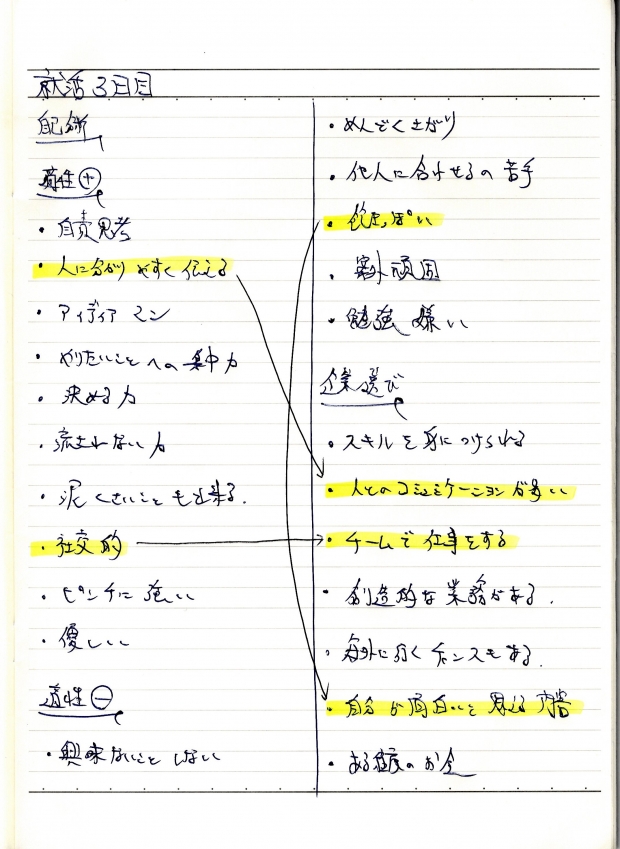 就活3日目
自己分析
適性⊕
・自責思考
・人に分かりやすく伝える
・アイディアマン
・やりたいことへの集中力
・決める力
・流されない力
・泥くさいことも出来る.
・社交的
・ピンチに強い
・優しい
適性⊖
・興味ないことしない
・めんどくさがり
・他人に合わせるの苦手
・飽きっぽい
・案外頑固
・勉強嫌い
企業選び
・スキルを身につけられる
・人とのコミュニケーションが多い
・チームで仕事をする
・創造的な業務がある.
・海外に行くチャンスもある.
・自分が面白いと思える内容
・ある程度のお金